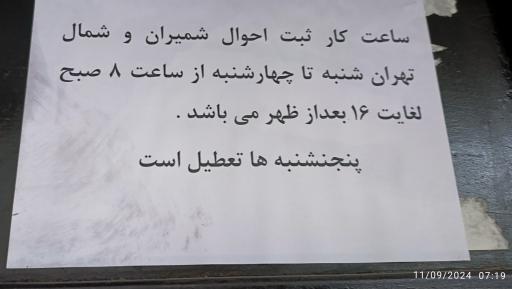 ساعت کار ثبت احوال شمیران و شمال
تهران شنبه تا چهارشنبه از ساعت ۸ صبح
لغایت ۱۶ بعداز ظهر می باشد .
پنجنشنبه ها تعطیل است
11/09/2024 07:19